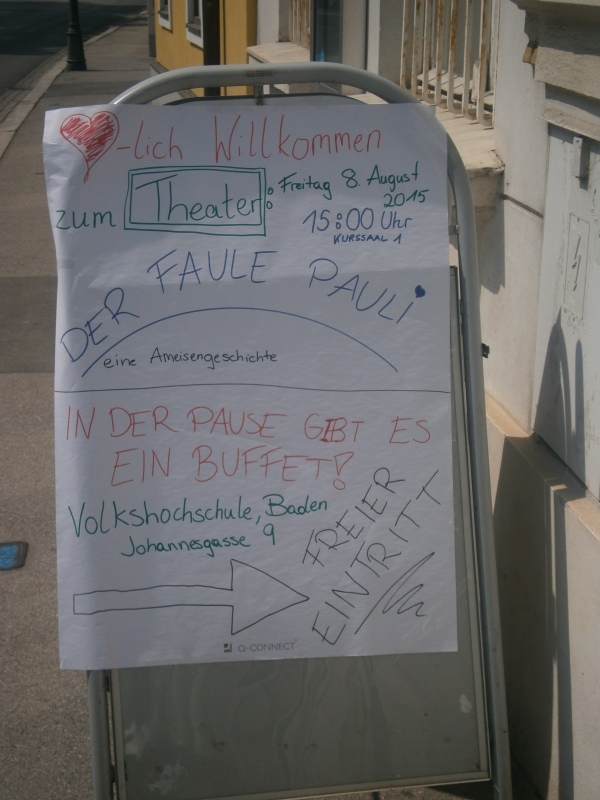 -lich Willkommen
zum Theater: Freitag 8. August
2015
15:00 Uhr
KURSSAAL 1
DER FAULE PAULI
eine Ameisengeschichte
IN DER PAUSE GIBT ES
EIN BUFFET!
Volkshochschule, Baden
Johannesgasse 9
FREIER
EINTRITT
Q-CONNECT